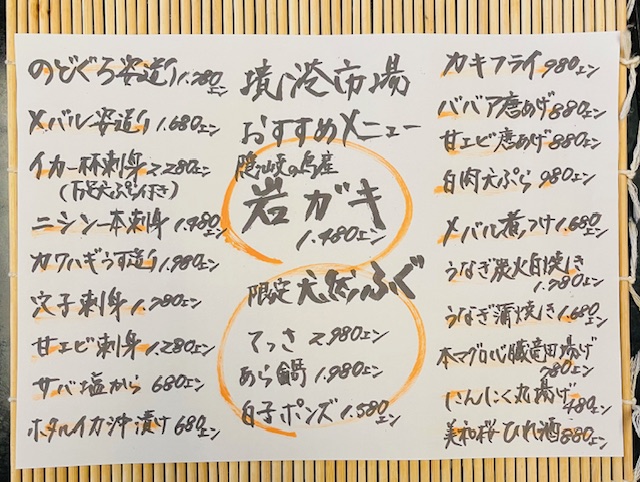 のどぐろ姿造り 1.780エン
メバル姿造り 1.680エン
イカ一杯刺身 2.280エン
(下足天ぷら付き)
ニシン一本刺身 1.480エン
カワハギうす造り 1.980エン
穴子刺身 1.780エン
甘エビ刺身 1.280エン
サバ塩から 680エン
ホタルイカ沖漬け 680エン
境港市場
おすすめメニュー
隠岐の島産
岩ガキ
1.480エン
限定 天然ふぐ
てっさ 2.980エン
あら鍋 1.980エン
白子ポンズ 1.580エン
カキフライ 980エン
ババア唐あげ 880エン
甘エビ唐あげ 880エン
白肉天ぷら 980エン
メバル煮つけ 1.680エン
うなぎ炭火白焼き
1.780エン
うなぎ蒲焼き 1.680エン
本マグロ心臓竜田揚げ
780エン
にんにく丸揚げ
480エン
美和桜ひれ酒 880エン